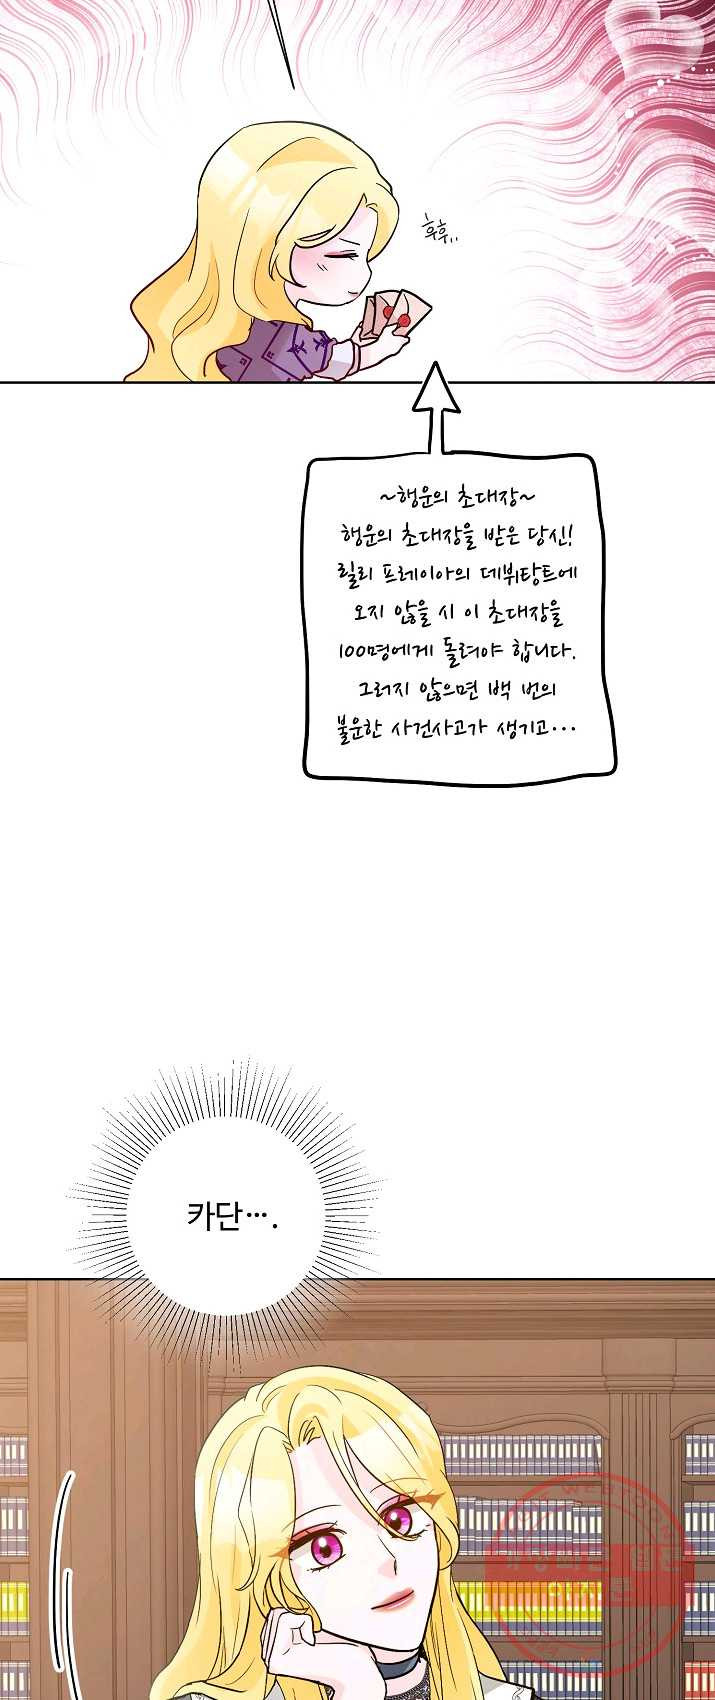 후후..
~행운의 초대장~
행운의 초대장을 받은 당신!
릴리 프레이야의 데뷔탕트에
오지 않을 시 이 초대장을
100명에게 돌려야 합니다.
그러지 않으면 백 번의
불운한 사건사고가 생기고···
카단···.
WEBTOON